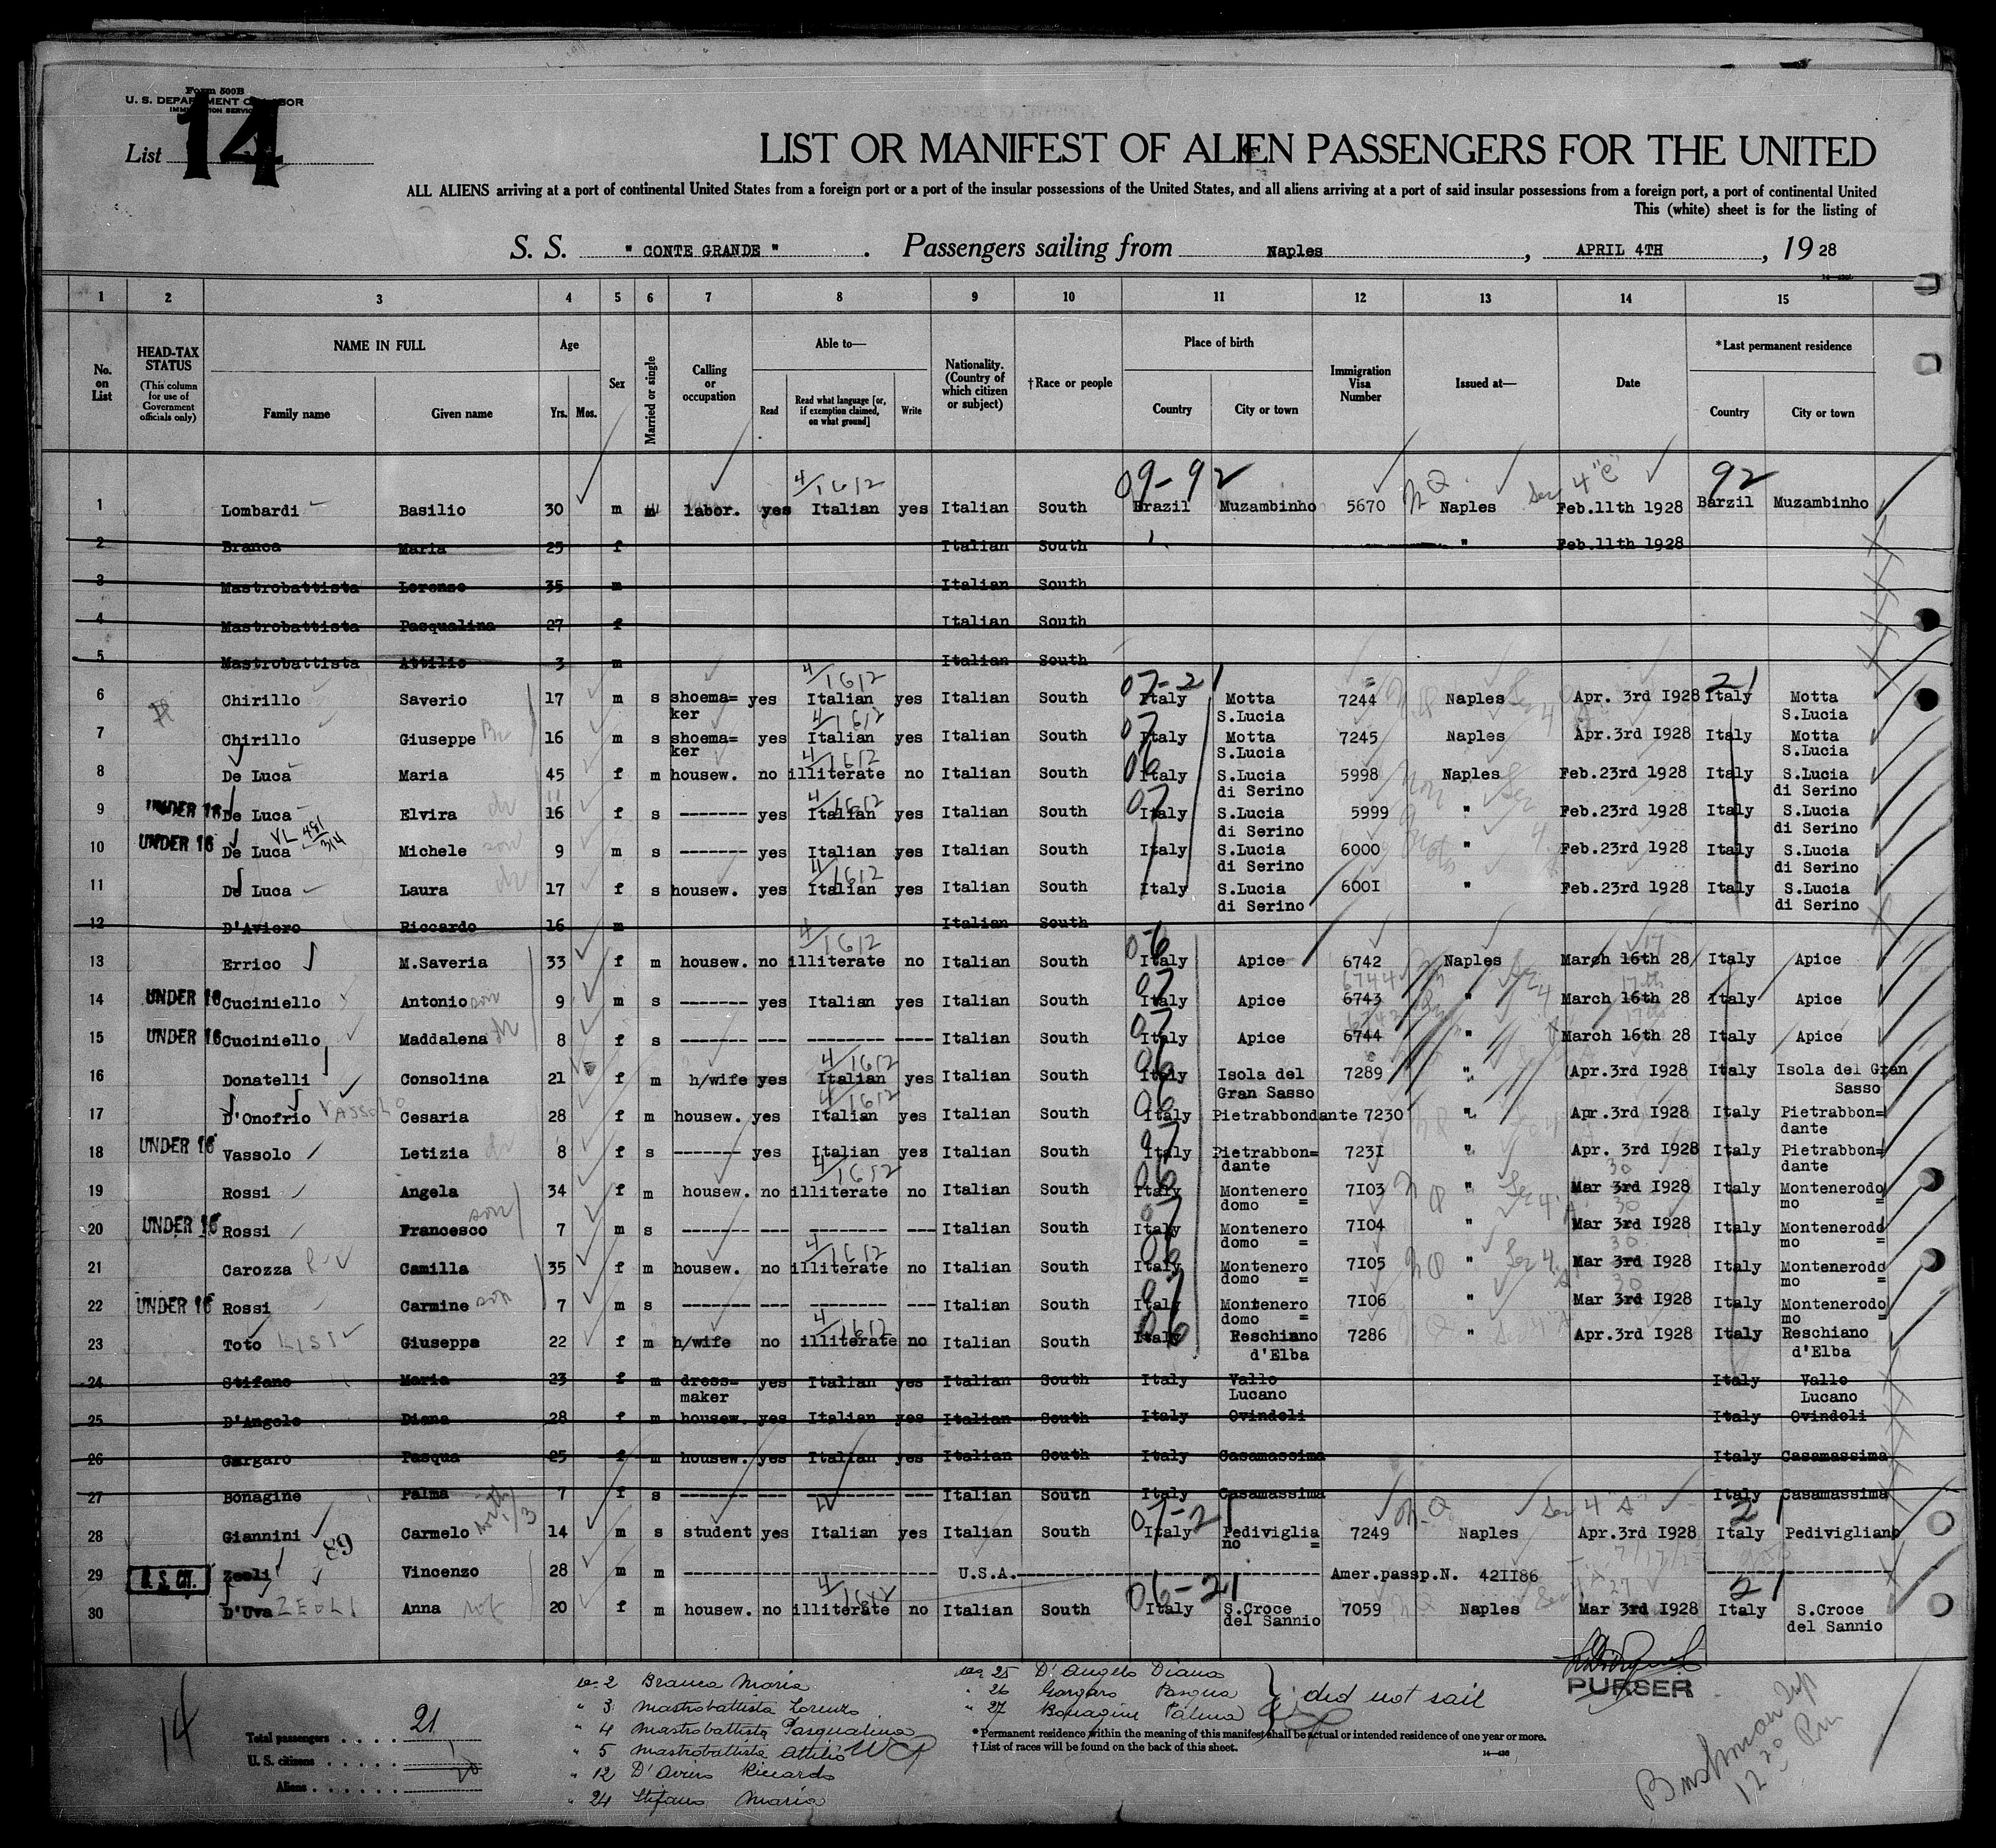 Form 500B
U. S. DEPARTMENT OF LABOR
IMMIGRATION SERVICE
List 14
LIST OR MANIFEST OF ALIEN PASSENGERS FOR THE UNITED
ALL ALIENS arriving at a port of continental United States from a foreign port or a port of the insular possessions of the United States, and all aliens arriving at a port of said insular possessions from a foreign port, a port of continental United
This (white) sheet is for the listing of
S. S. " CONTE GRANDE " . Passengers sailing from Naples , APRIL 4TH , 19 28
1 2 3 4 5 6 7 8 9 10 11 12 13 14 15
No. on List
HEAD-TAX STATUS (This column for use of Government officials only)
NAME IN FULL Family name Given name
Age Yrs. Mos.
Sex
Married or single
Calling or occupation
Able to— Read Read what language [or, if exemption claimed, on what ground] Write
Nationality. (Country of which citizen or subject)
†Race or people
Place of birth Country City or town
Immigration Visa Number
Issued at—
Date
*Last permanent residence Country City or town
09-92 92
4/1612 NQ Sec 4 "C"
1 Lombardi Basilio 30 m m labor. yes Italian yes Italian South Brazil Muzambinho 5670 Naples Feb.11th 1928 Barzil Muzambinho
2 Branca Maria 25 f Italian South " Feb.11th 1928
3 Mastrobattista Lorenzo 35 m Italian South
4 Mastrobattista Pasqualina 27 f Italian South
5 Mastrobattista Attilio 3 m Italian South
4/1612 07-21 21
6 Chirillo Saverio 17 m s shoema= ker yes Italian yes Italian South Italy Motta S.Lucia 7244 Naples Apr. 3rd I928 Italy Motta S.Lucia
4/1612 07
7 Chirillo Giuseppe Br 16 m s shoema= ker yes Italian yes Italian South Italy Motta S.Lucia 7245 Naples Apr.3rd I928 Italy Motta S.Lucia
4/1612 06
8 De Luca Maria 45 f m housew. no illiterate no Italian South Italy S.Lucia di Serino 5998 Naples Feb.23rd 1928 Italy S.Lucia di Serino
4/1612 07
9 UNDER 16 De Luca Elvira dr 16 f s ------- yes Italian yes Italian South Italy S.Lucia di Serino 5999 " Feb.23rd 1928 Italy S.Lucia di Serino
VL 481/314
10 UNDER 16 De Luca Michele son 9 m s ------- yes Italian yes Italian South Italy S.Lucia di Serino 6000 " Feb.23rd 1928 Italy S.Lucia di Serino
4/1612
11 De Luca Laura dr 17 f s housew. yes Italian yes Italian South Italy S.Lucia di Serino 600I " Feb.23rd 1928 Italy S.Lucia di Serino
12 D'Aviero Riccardo 16 m Italian South
4/1612 06 17
13 Errico M.Saveria 33 f m housew. no illiterate no Italian South Italy Apice 6742 Naples March 16th 28 Italy Apice
07 6744 17th
14 UNDER 16 Cuciniello Antonio son 9 m s ------- yes Italian yes Italian South Italy Apice 6743 " March 16th 28 Italy Apice
07 6743 17th
15 UNDER 16 Cuciniello Maddalena dr 8 f s ------- --- -------- ---- Italian South Italy Apice 6744 " March 16th 28 Italy Apice
4/1612 06
16 Donatelli Consolina 21 f m h/wife yes Italian yes Italian South Italy Isola del Gran Sasso 7289 " Apr.3rd I928 Italy Isola del Gran Sasso
4/1612 06
17 D'Onofrio VASSOLO Cesaria 28 f m housew. yes Italian yes Italian South Italy Pietrabbondante 7230 " Apr.3rd I928 Italy Pietrabbon= dante
07
18 UNDER 16 Vassolo Letizia dr 8 f s ------- yes Italian yes Italian South Italy Pietrabbon= dante 723I " Apr. 3rd I928 Italy Pietrabbon= dante
4/1612 06 NQ Sec 4 30
19 Rossi Angela 34 f m housew. no illiterate no Italian South Italy Montenero domo = 7I03 " Mar 3rd I928 Italy Montenerodo mo =
07 30
20 UNDER 16 Rossi Francesco son 7 m s ------- --- -------- --- Italian South Italy Montenero domo = 7I04 " Mar 3rd I928 Italy Montenerodo mo =
4/1612 06 NQ Sec 4 30
21 Carozza Camilla 35 f m housew. no illiterate no Italian South Italy Montenero domo = 7I05 " Mar 3rd I928 Italy Montenerodo mo =
07 30
22 UNDER 16 Rossi Carmine son 7 m s ------- --- -------- --- Italian South Italy Montenero domo = 7I06 " Mar 3rd I928 Italy Montenerodo mo =
4/1612 06
23 Toto LISI Giuseppa 22 f m h/wife no illiterate no Italian South Italy Reschiano d'Elba 7286 " Apr.3rd I928 Italy Reschiano d'Elba
24 Stifano Maria 23 f m dress- maker yes Italian yes Italian South Italy Vallo Lucano Italy Vallo Lucano
25 D'Angelo Diana 28 f m housew. yes Italian yes Italian South Italy Ovindoli Italy Ovindoli
26 Gargaro Pasqua 25 f m housew. yes Italian yes Italian South Italy Casamassima Italy Casamassima
27 Bonagine Palma 7 f s ------- --- -------- --- Italian South Italy Casamassima Italy Casamassima
07-21 NQ Sec 4 "A" 21
28 Giannini Carmelo 14 m s student yes Italian yes Italian South Italy Pediviglia no = 7249 Naples Apr.3rd I928 Italy Pedivigliano
89
29 U. S. CIT. Zeoli Vincenzo 28 m m U.S.A. Amer.passp.N. 42II86
4/1612 06-21 27 21
30 D'Uva ZEOLI Anna 20 f m housew. no illiterate no Italian South Italy S.Croce del Sannio 7059 Naples Mar 3rd I928 Italy S.Croce del Sannio
PURSER
14
Total passengers . . . . 21
U. S. citizens . . . . . 1
Aliens . . . . . . 20
No. 2 Branca Maria
" 3 Mastrobattista Lorenzo
" 4 Mastrobattista Pasqualina
" 5 Mastrobattista Attilio
" 12 D'Aviero Riccardo
" 24 Stifano Maria
No. 25 D'Angelo Diana
" 26 Gargaro Pasqua
" 27 Bonagine Palma
did not sail
* Permanent residence within the meaning of this manifest shall be actual or intended residence of one year or more.
† List of races will be found on the back of this sheet.
14—430